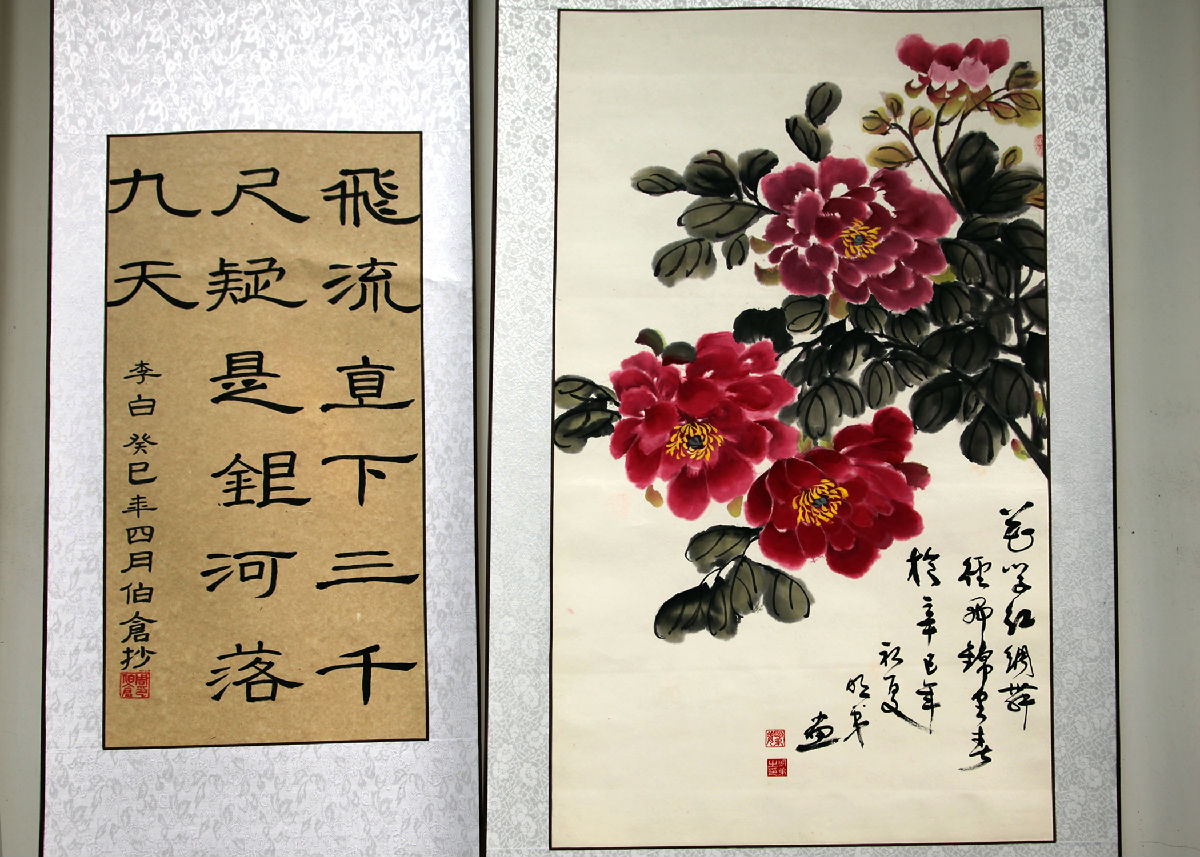 飛流直下三千
尺疑是銀河落
九天
李白 癸巳年四月伯倉抄
花學紅綢舞
徑錦春
於辛巳年
初夏
畫